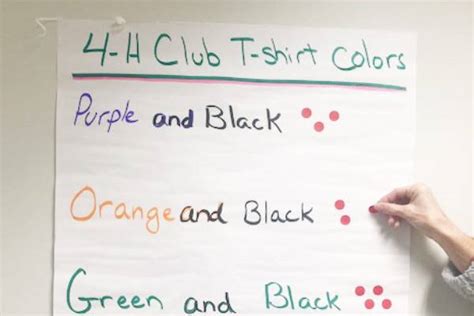 4-H Club T-shirt Colors
Purple and Black
Orange and Black
Green and Black